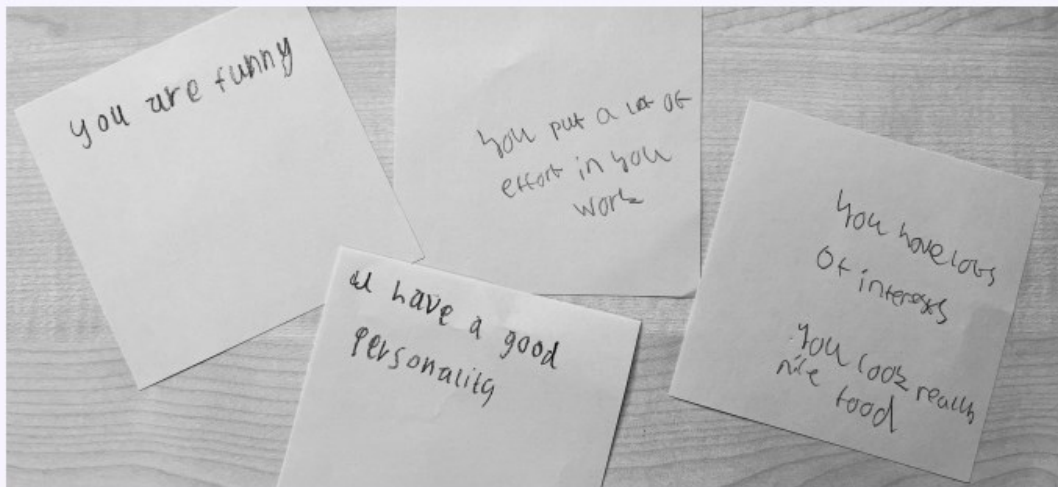 you are funny
you put a lot of
effort in you
work
u have a good
personality
you have lots
of interests
you cook really
nice food